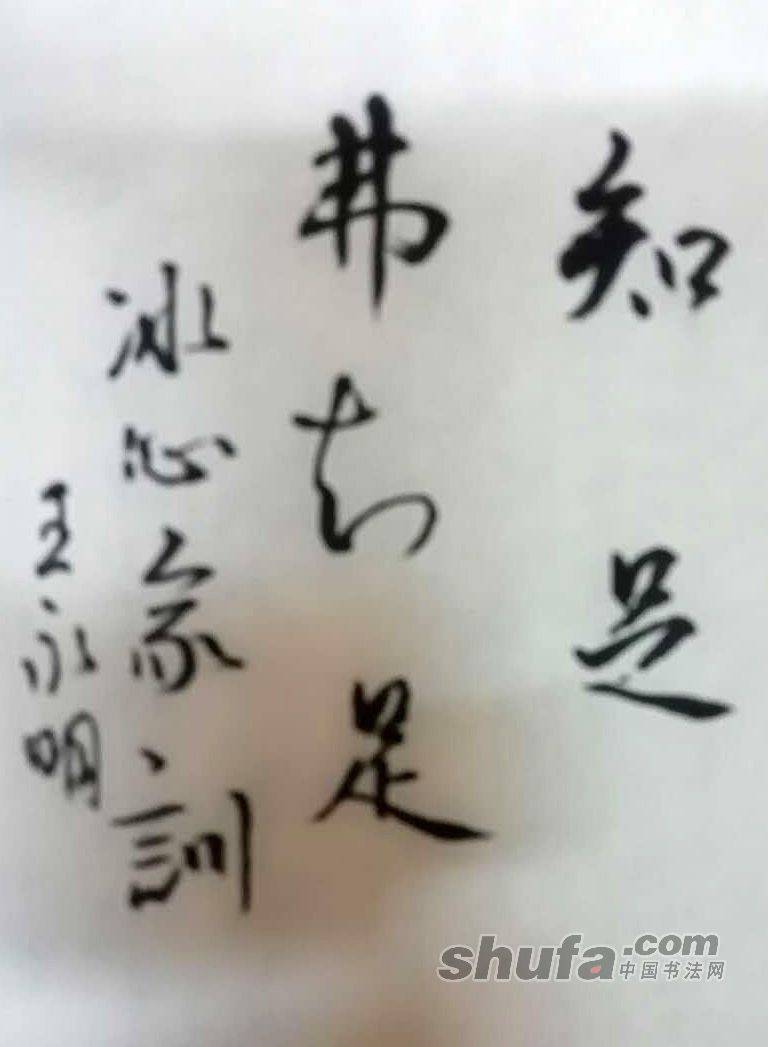 知足
弗知足
冰心家训
王永明
shufa.com
中国书法网